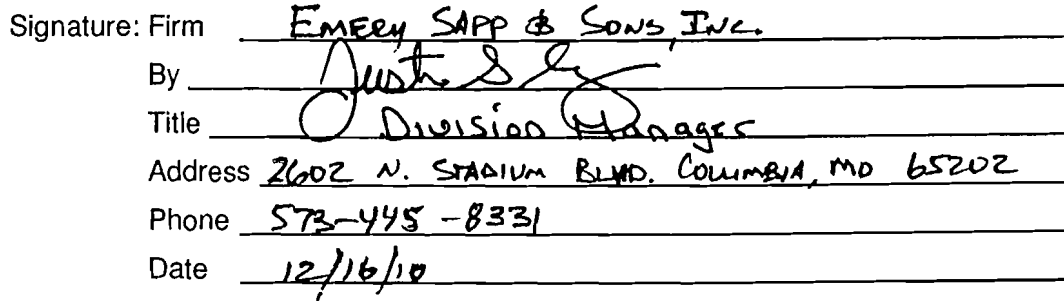 Signature: Firm EMERY SAPP & SONS, INC.
By Justin S
Title Division Manager
Address 2602 N. STADIUM BLVD. COLUMBIA, MO 65202
Phone 573-445-8331
Date 12/16/10